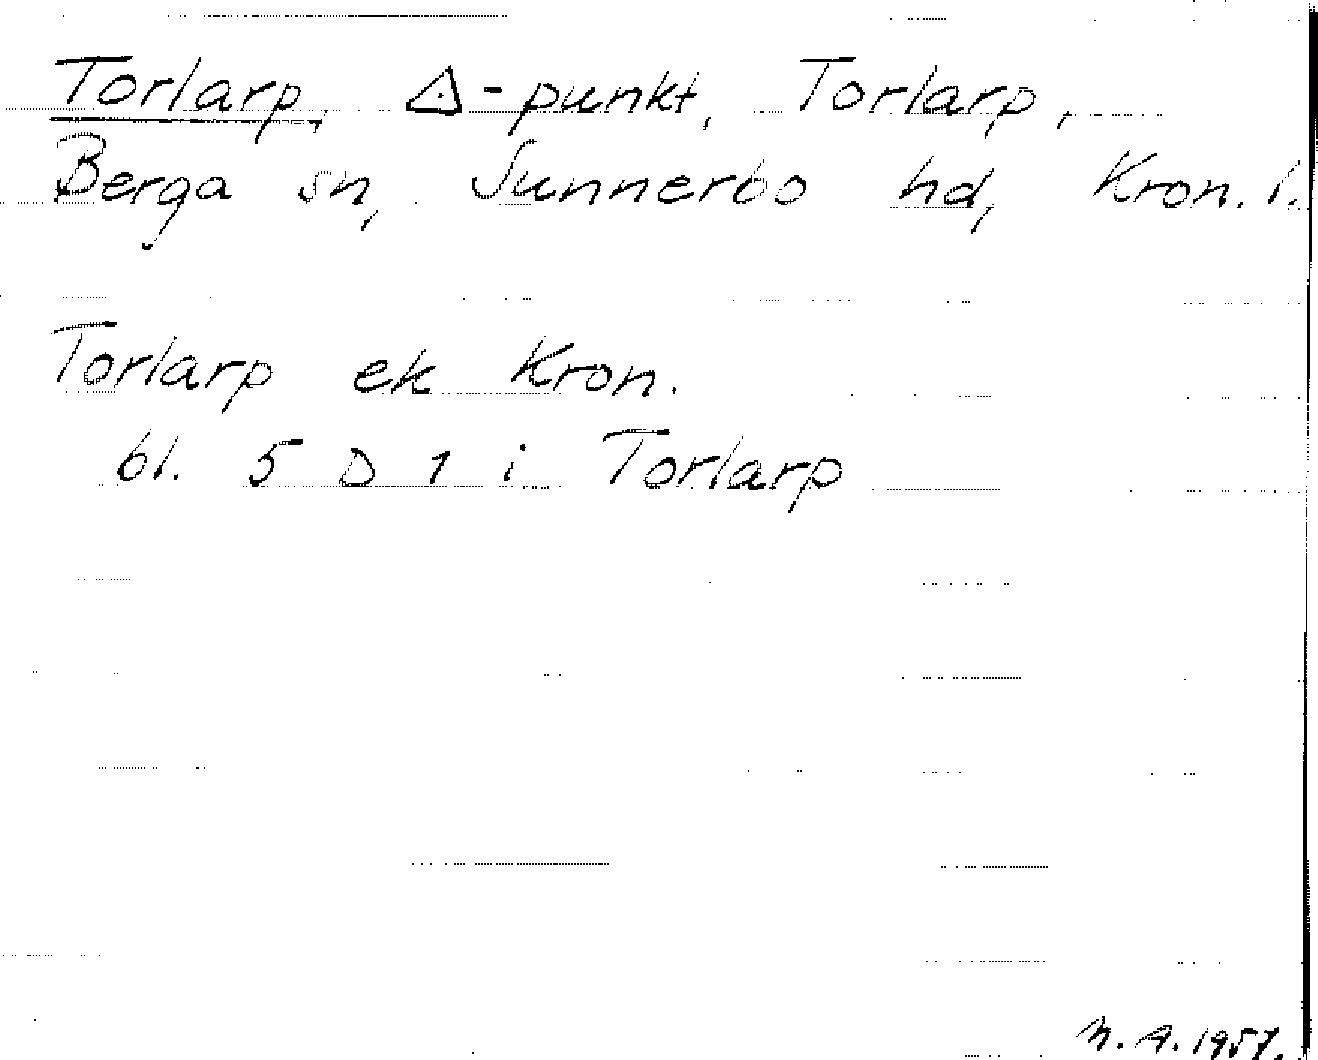 Torlarp, △-punkt, Torlarp,
Berga sn, Sunnerbo hd, Kron. l.
Torlarp ek Kron.
bl. 5 D 1 i Torlarp
N. A. 1957.